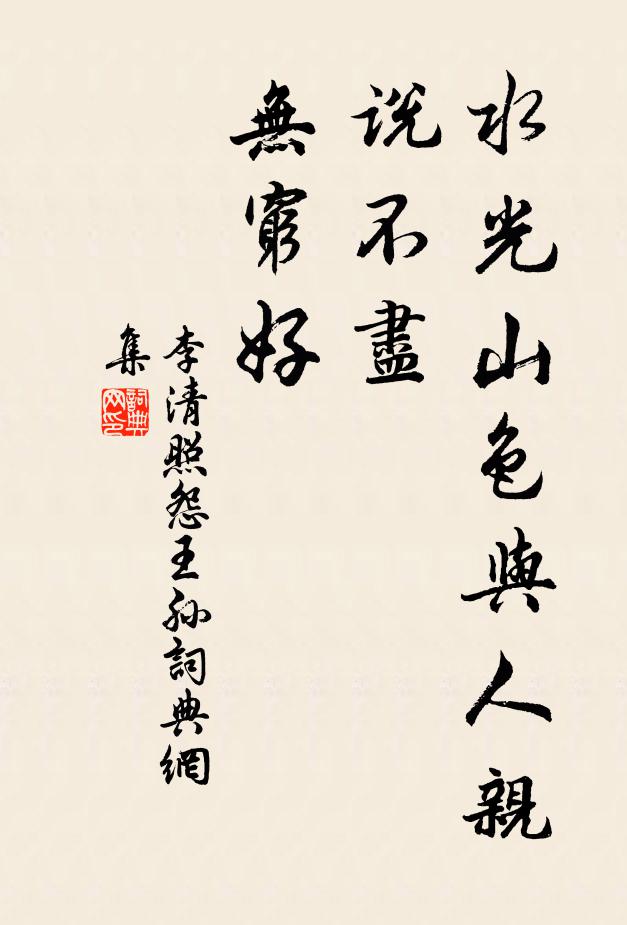 水光山色與人親
説不盡
無窮好
李清照怨王孫詞典網
集
詞典
网印